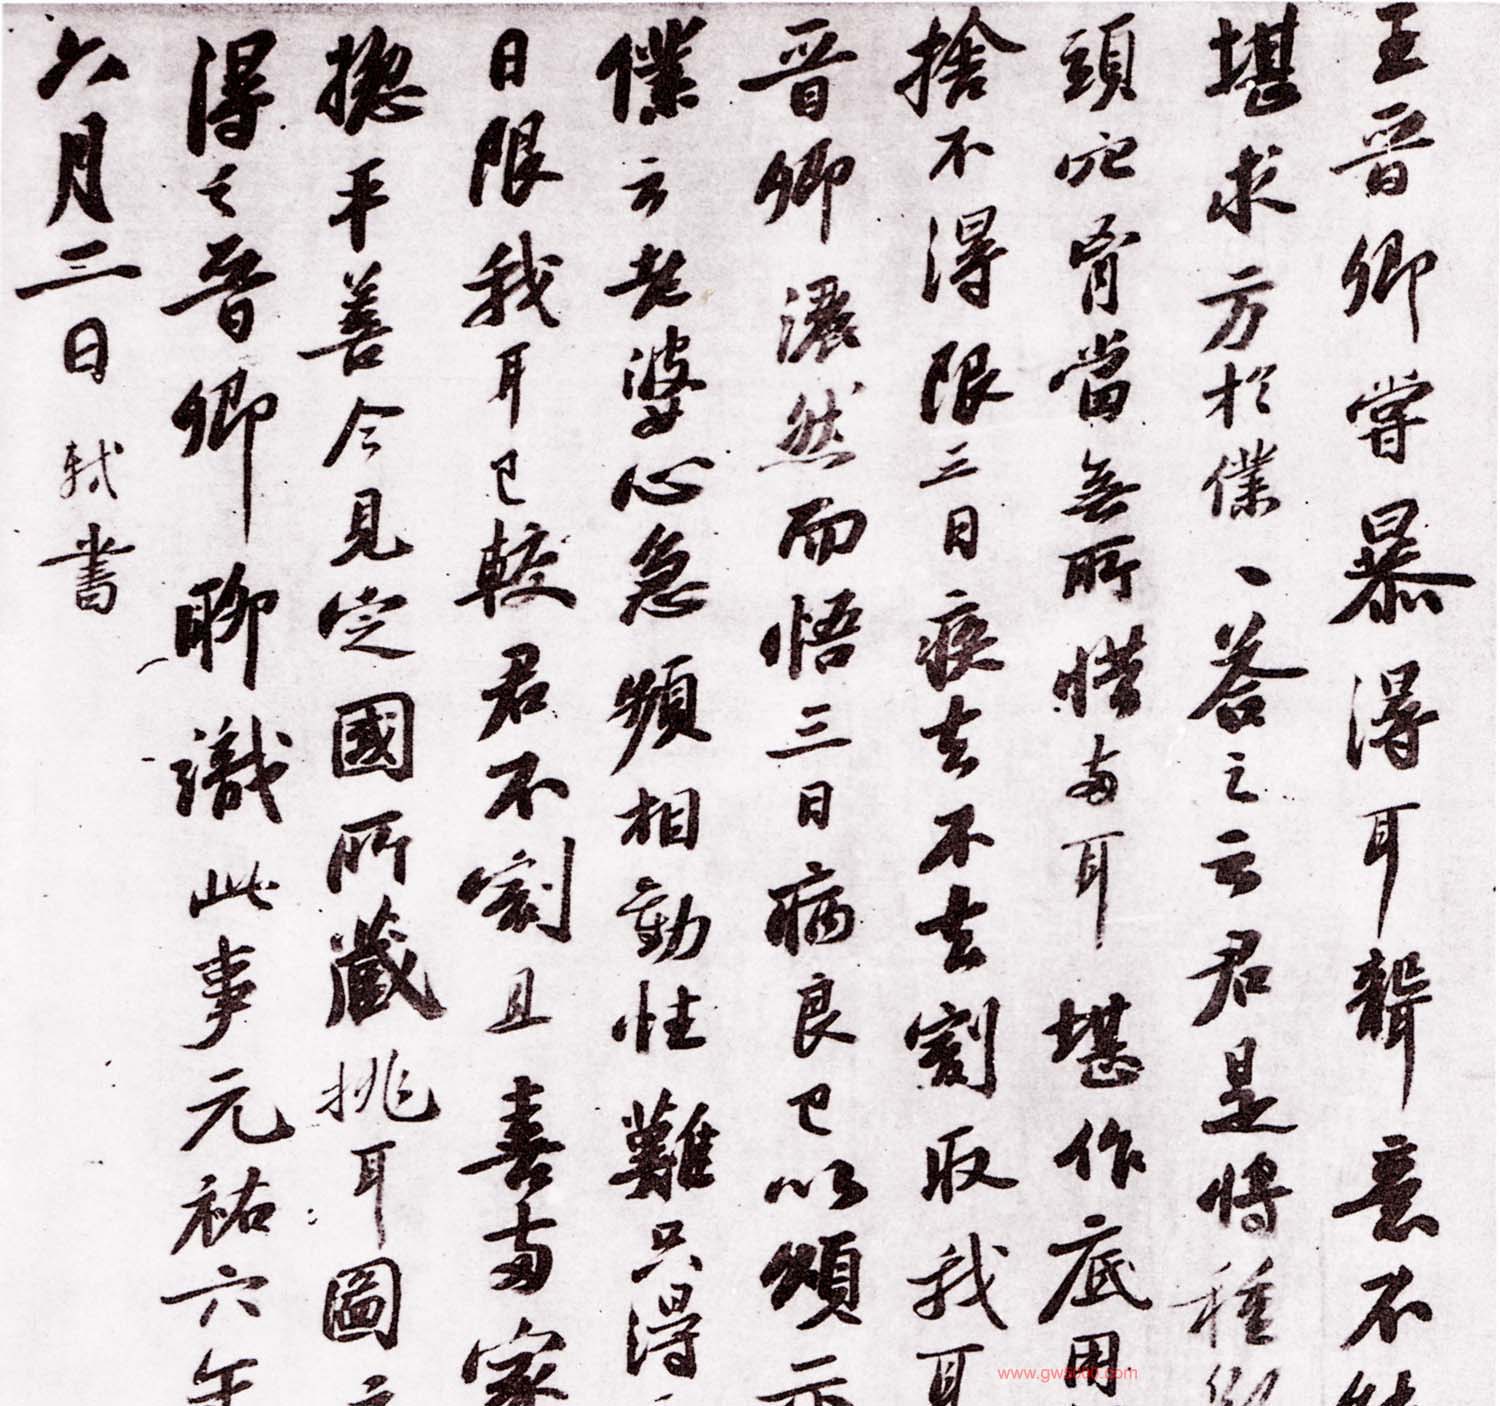 王晋卿嘗暴得耳聾意不
堪求方於僕、答之云君是將種
頭穴胷當無所惜兩耳堪作底用
捨不得限三日疾去不去割取我耳
晋卿灑然而悟三日病良已以頌示
僕云老婆心急頻相勸性難只得
日限我耳已較君不割且喜兩家
揔平善今見定國所藏挑耳圖云
得之晋卿聊識此事元祐六年
六月三日軾書